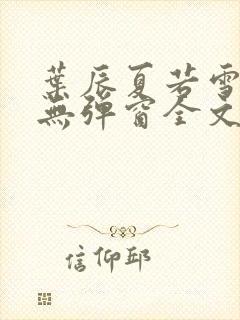 葉辰夏若雪
無彈窗全文
信仰邱